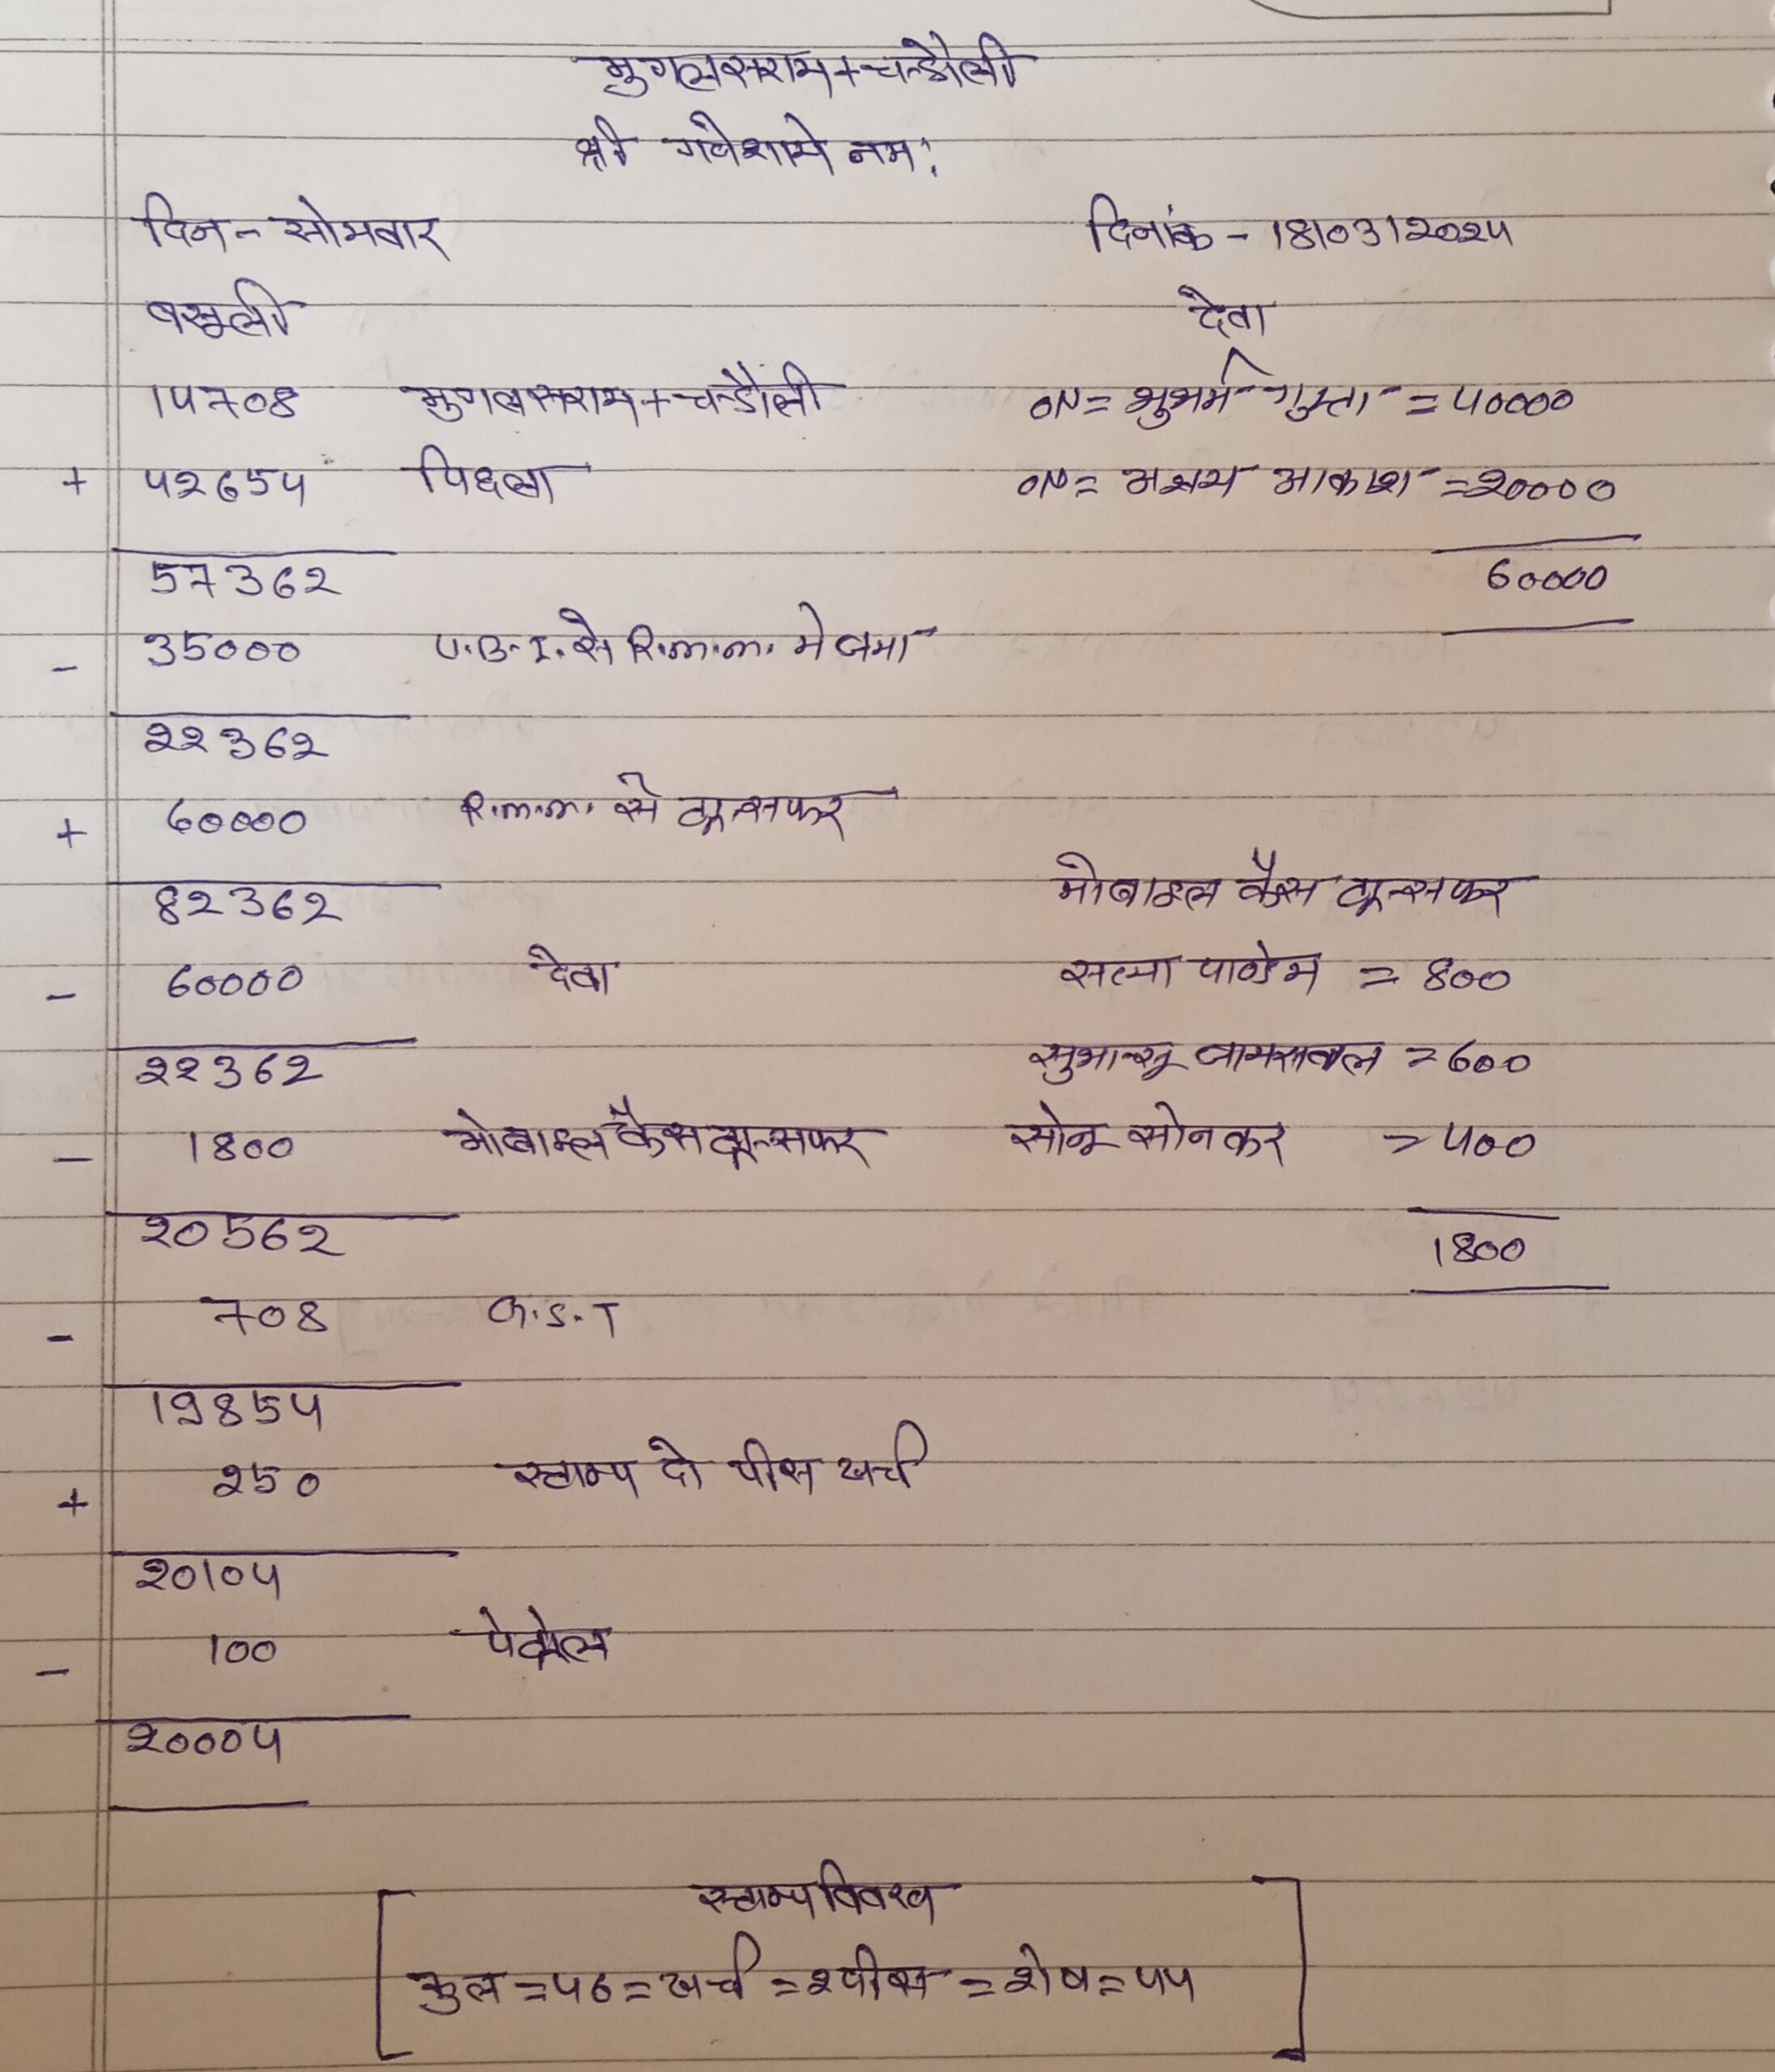 मुगलसराय+चन्दौली
श्री गणेशाये नमः
दिन- सोमवार दिनांक - 18/03/2024
वसूली देवा
14708 मुगलसराय+चन्दौली ON= शुभम गुप्ता = 40000
+ 42654 पिछला ON= अक्षय आकाश = 20000
57362 60000
- 35000 U.B.I. से R.m.m. मे जमा
22362
+ 60000 R.m.m. से ट्रान्सफर
82362 मोबाइल कैस ट्रान्सफर
- 60000 देवा सत्या पाण्डेय = 800
22362 सुभान्सू जायसवाल = 600
- 1800 मोबाइल कैस ट्रान्सफर सोनू सोनकर = 400
20562 1800
- 708 G.S.T
19854
+ 250 स्टाम्प दो पीस खर्च
20104
- 100 पेट्रोल
20004
स्टाम्प विवरण
कुल = 46 = खर्च = 2 पीस = शेष = 44